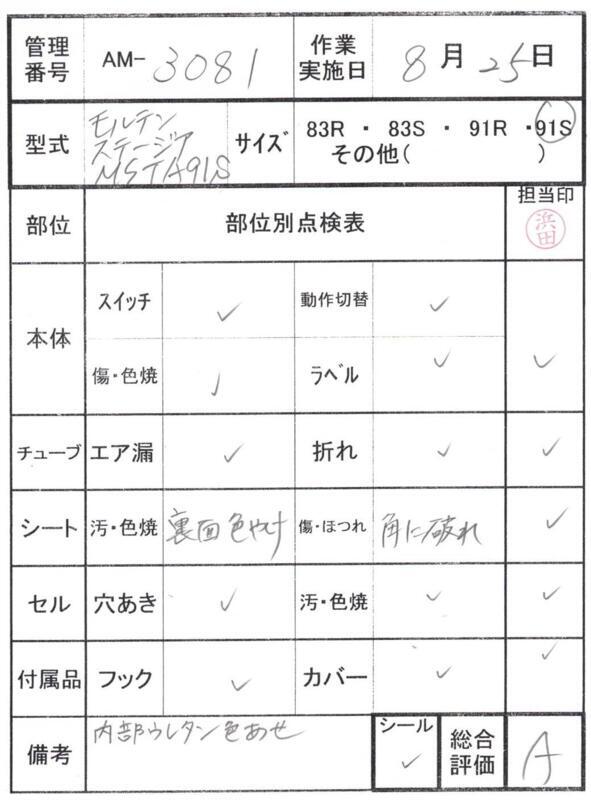 管理番号 AM-3081 作業実施日 8月25日
型式 モルテン ステージア MSTA91S サイズ 83R ・ 83S ・ 91R ・91S
その他( )
担当印
部位 部位別点検表 浜田
本体 スイッチ ✓ 動作切替 ✓
傷・色焼 ✓ ラベル ✓ ✓
チューブ エア漏 ✓ 折れ ✓ ✓
シート 汚・色焼 裏面色やけ 傷・ほつれ 角に破れ ✓
セル 穴あき ✓ 汚・色焼 ✓ ✓
付属品 フック ✓ カバー ✓ ✓
備考 内部ウレタン色あせ シール ✓ 総合評価 A